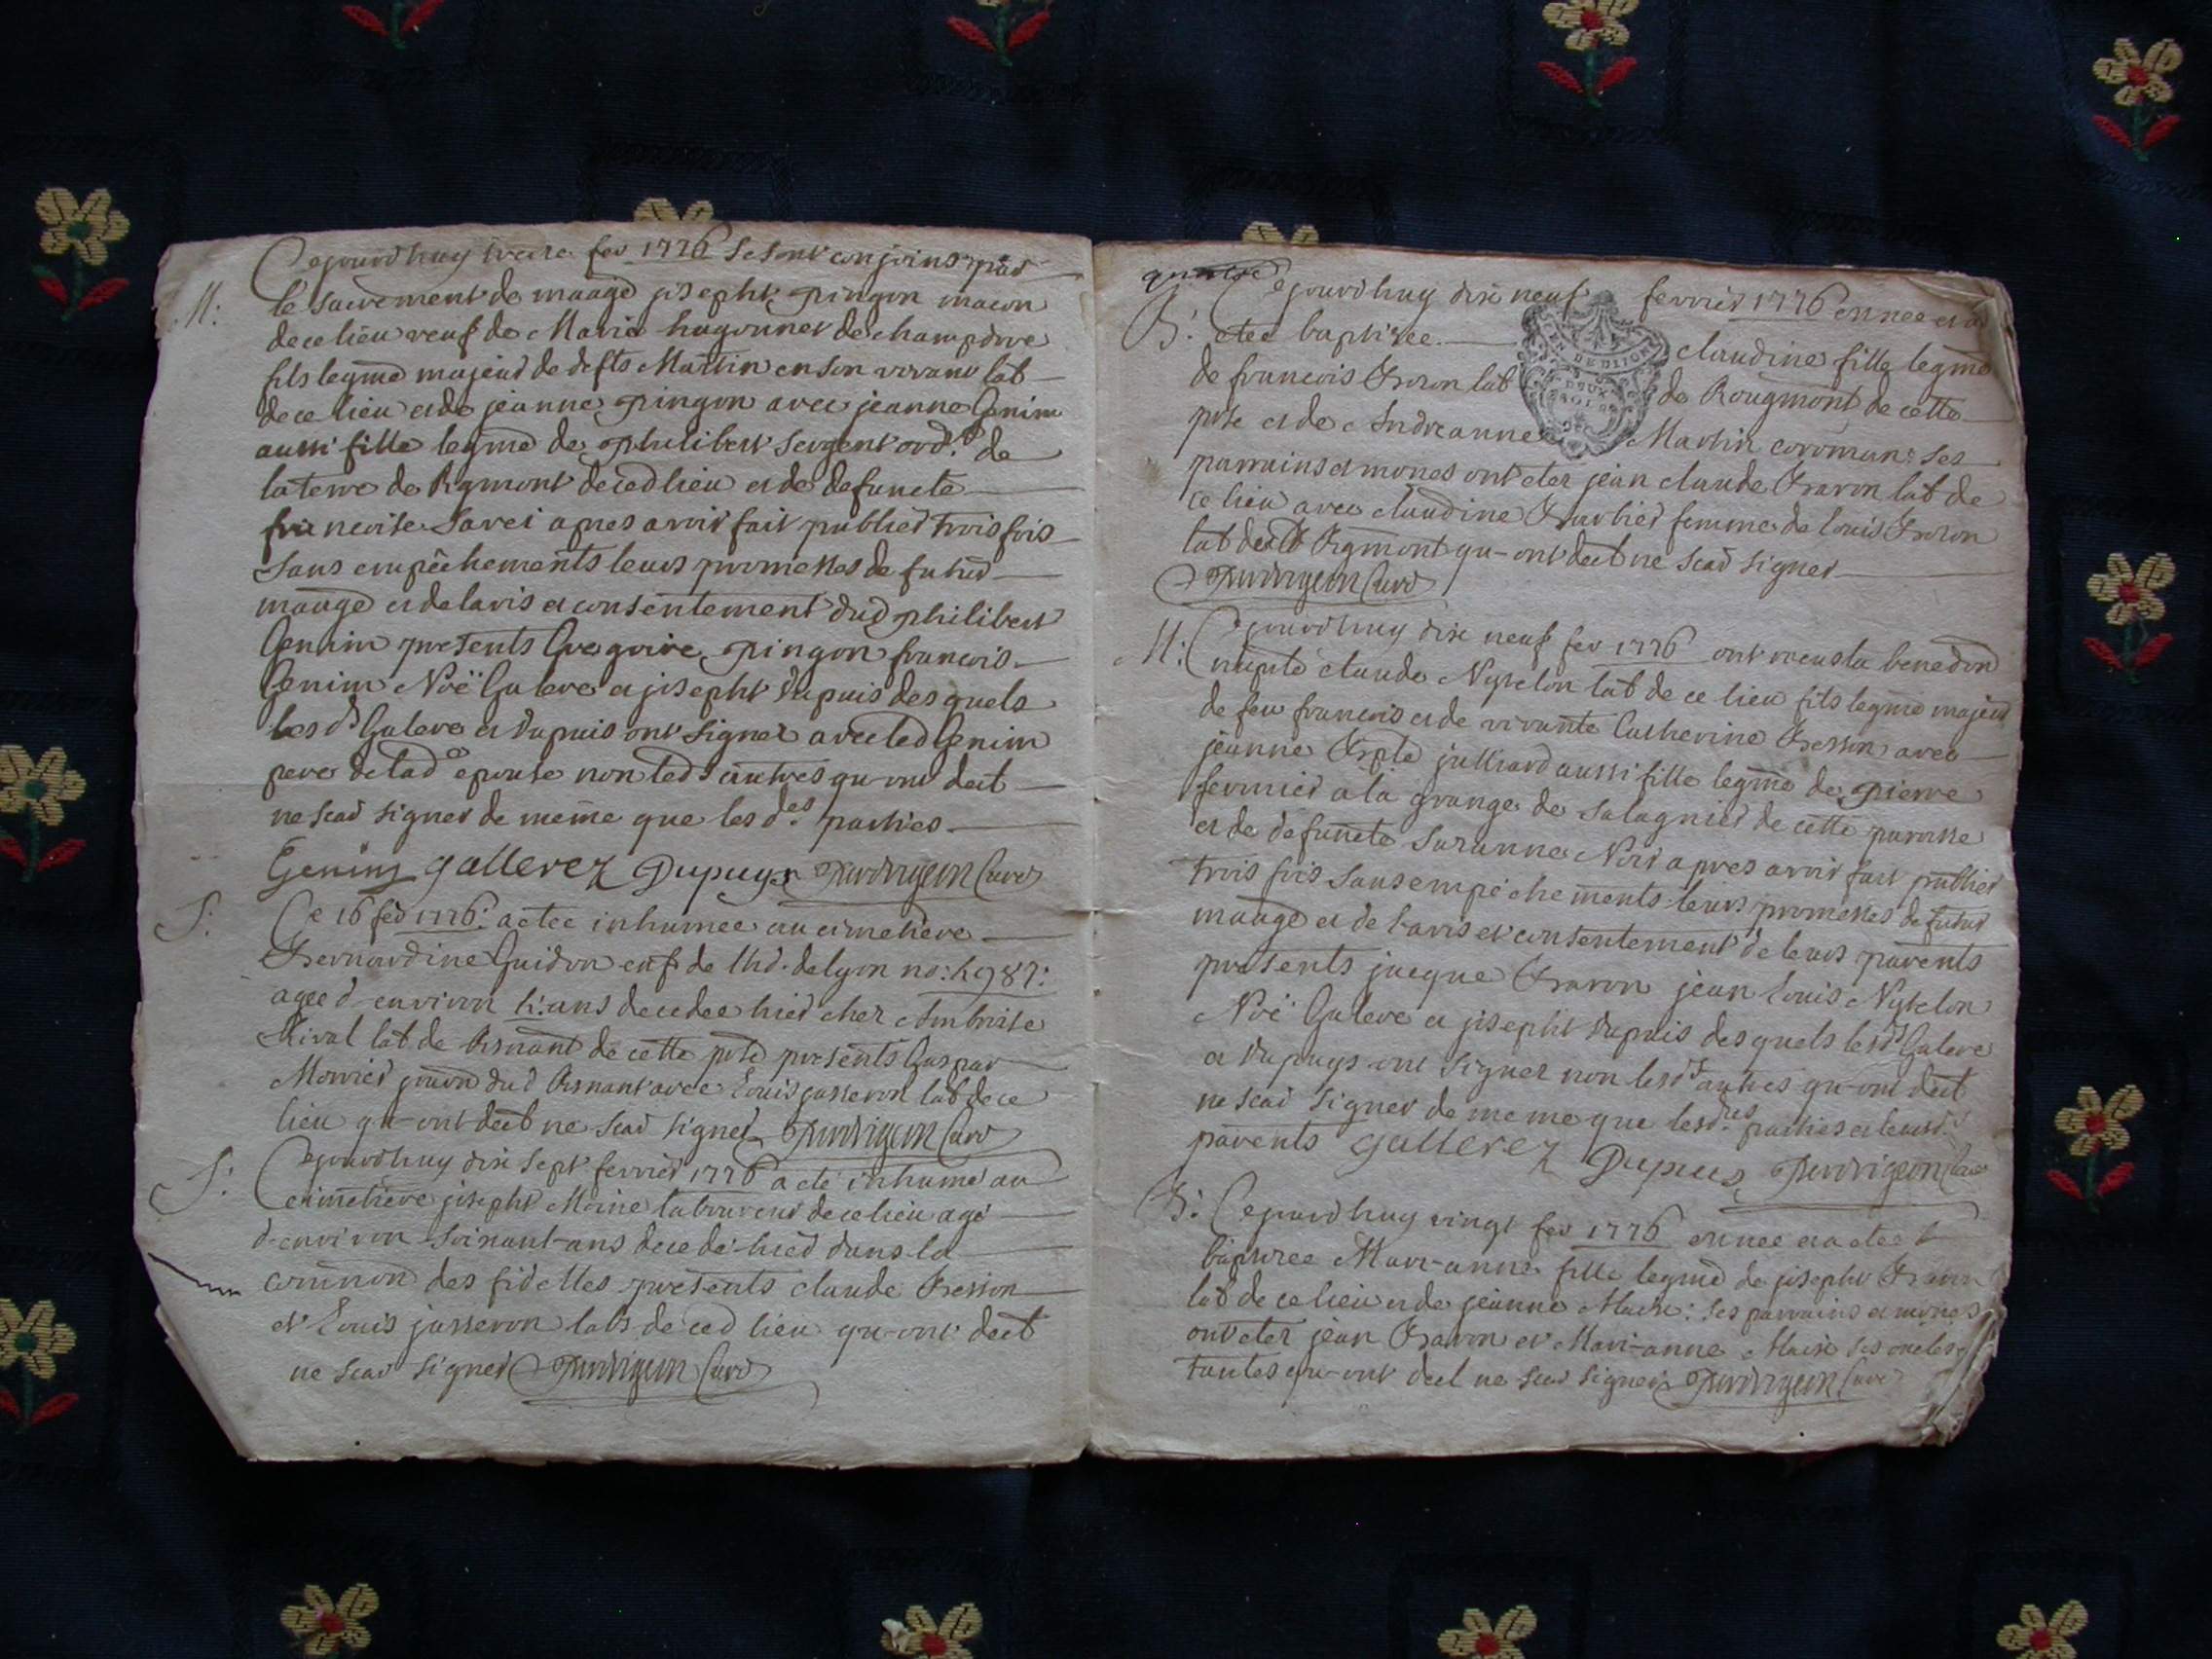 Cejourdhuy treize fev 1776 se sont conjoins par
M: le sacrement de mariage joseph pingon macon
de ce lieu veuf de Marie hugonnet de champdore
fils legme majeur de defts Martin en son vivant lab
de ce lieu et de jeanne pingon avec jeanne Genim
aussi fille legme de philibert sergent ord.re de
la terre de Rgmont de ced lieu et de defuncte
francoise Savei apres avoir fait publier trois fois
sans empêchements leurs promesses de futur
mariage et de lavis et consentement dud philibert
Genim presents Gregoire pingon francois
Genim Noë Galere et joseph dupuis desquels
les ds Galere et dupuis ont signer avec led Genim
pere de lad e epouse non led s autres qu-ont deet
ne scav signer de même que les d.es parties
Genim gallerez Dupuys Curé
S: Ce 16 fev 1776: a etee inhumee au cimetiere
Bernardine Guidon enf de lhd. de lyon no: 4987:
agee d-environ 4: ans decedee hier chez Ambroise
Rival lab de de cette pse presents Gaspar
Morrier dud avec Louis jasseron lab de ce
lieu qu-ont deet ne scav signer Curé
S: Cejourdhuy dix sept fevrier 1776 a eté inhumé au
cimetiere joseph Moine laboureur de ce lieu agé
d-environ soixant-ans decedé hier dans la
common des fidelles presents claude Besson
et Louis jasseron labs de ced lieu qu-ont deet
ne scav signer Curé
Cejourdhuy dix neuf fevrier 1776 est nee et a
B: etee baptisee claudine fille legme
GEN DE DIJON
DEUX
de francois lab de Rougmont de cette
pse et de Andreanne Martin ses
parrains et mones ont eter jean claude Bavon lab de
ce lieu avec claudine Barbier femme de louis
lab dud Rgmont qu-ont deet ne scav signer
Curé
M: Cejourdhuy dix neuf fev 1776 ont receus la benedon
nuptle claude Nyvelon lab de ce lieu fils legme majeur
de feu francois et de vivante Catherine Besson avec
jeanne Bpte julliard aussi fille legme de pierre
fermier a la grange de Salagnier de cette paroisse
et de defuncte Suzanne Noir apres avoir fait publier
trois fois sans empêchements leurs promesses de futur
mariage et de lavis et consentement de leurs parents
presents jacque Bavon jean Louis Nyvelon
Noë Galere et joseph dupuis desquels les ds Galere
et dupuys ont signer non lesd s autres qu-ont deet
ne scav signer de meme que lesd. es parties et leursd.
parents gallerez Dupuis Curé
B: Cejourdhuy vingt fev 1776 est nee et a etee
baptisee Mari-anne fille legme de joseph Bavon
lab de ce lieu et de jeanne Maire: ses parrains et mones
ont eter jean Bavon et Mari-anne Maire ses oncles
tantes qu-ont deet ne scav signer Curé